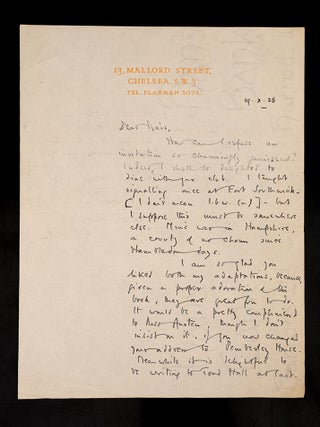 13, MALLORD STREET,
CHELSEA. S.W.3
TEL. FLAXMAN 2074.
Dear
How can I refuse an
invitation so charmingly furnished?
Indeed, I shall be delighted to
dine with your club. I taught
signalling once at Fort Southwick
I don't mean - but
I suppose this must be somewhere
else. Mine was in Hampshire,
a county of no charm since
Hambledon days.
I am so glad you
liked both my adaptations, because
given a proper adoration of the
book, they are great fun to do.
It would be a pretty compliment
to Miss Austen, though I don't
insist on it, if you now changed
your address to Pemberley House.
Meanwhile it is delightful to
be writing to Toad Hall at last.